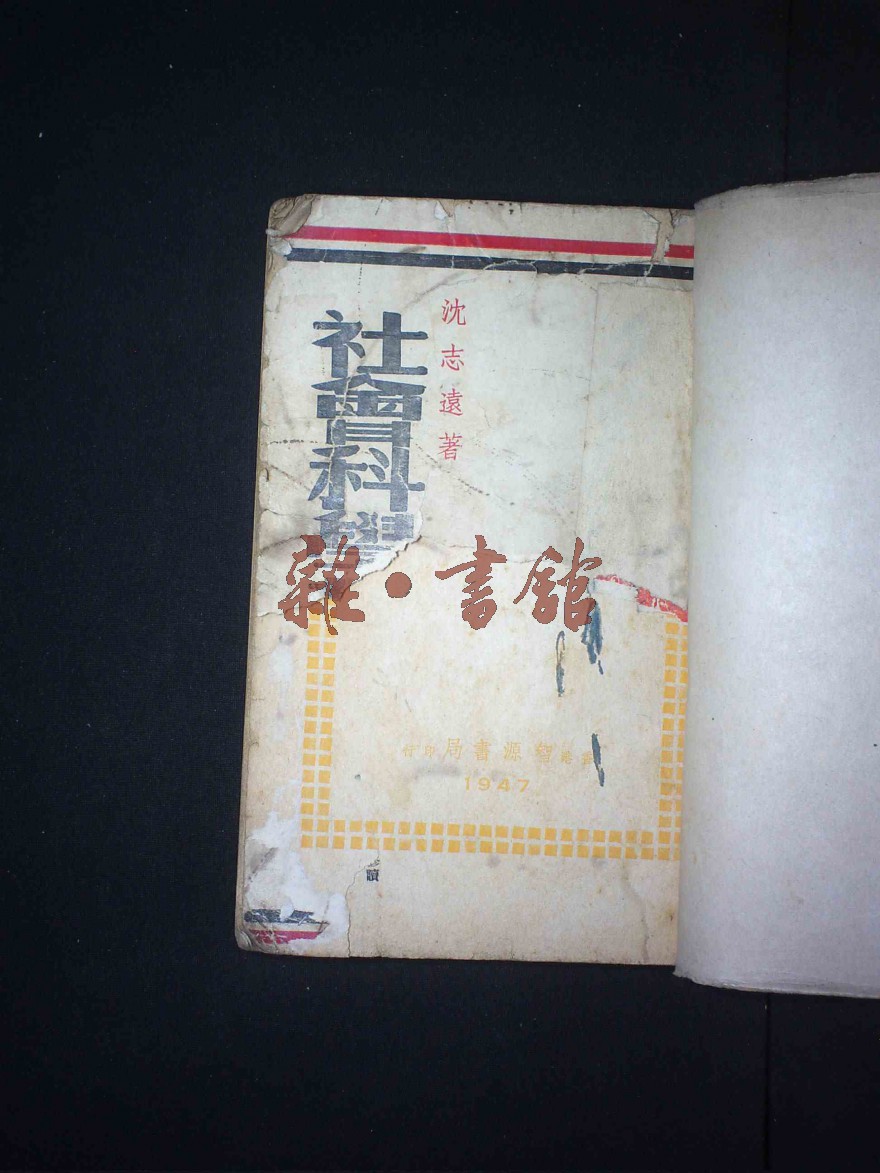 沈志遠著
社會科學
雜·書館
智源書局印行
1947